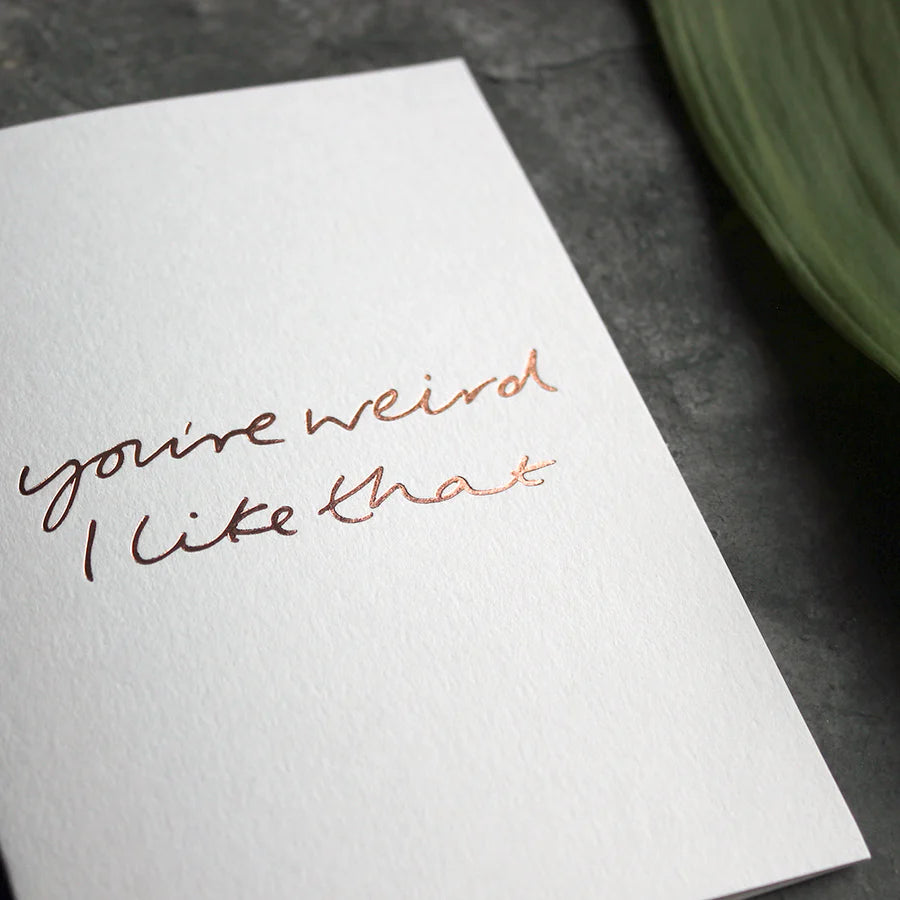 you're weird
I like that